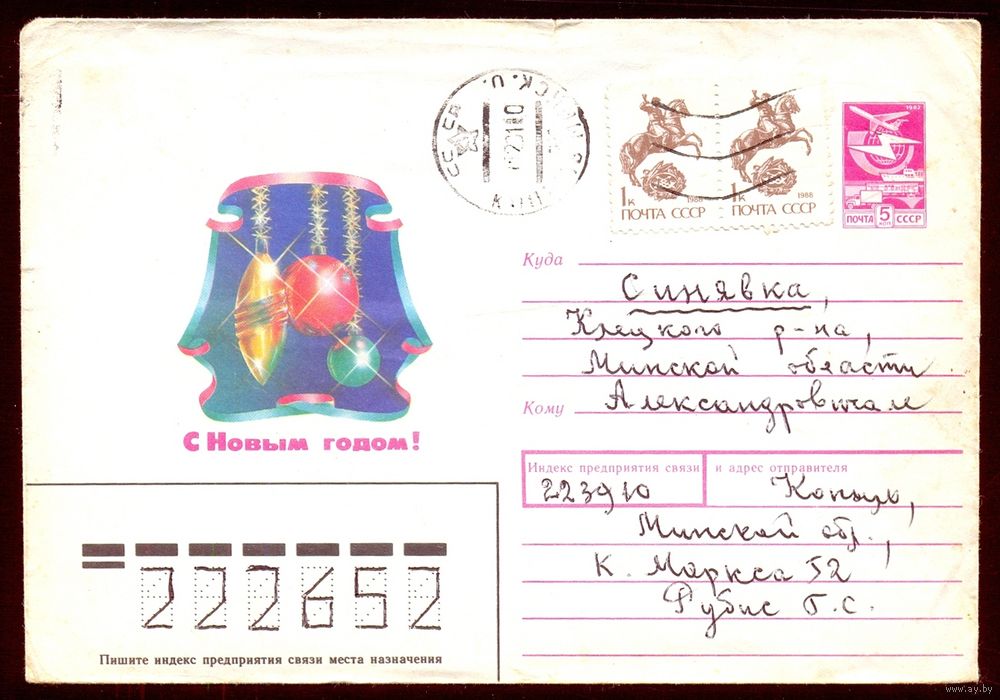 СССР
1К 1988
ПОЧТА СССР
1К 1988
ПОЧТА СССР
1982
ПОЧТА 5 КОП СССР
Куда
Синявка,
Клецкого р-на,
Минской области
Кому Александровичам
С Новым годом!
Индекс предприятия связи и адрес отправителя
223910 Копыль,
Минской обл.,
К. Маркса 52
Рубис Г.С.
222652
Пишите индекс предприятия связи места назначения
www.ay.by